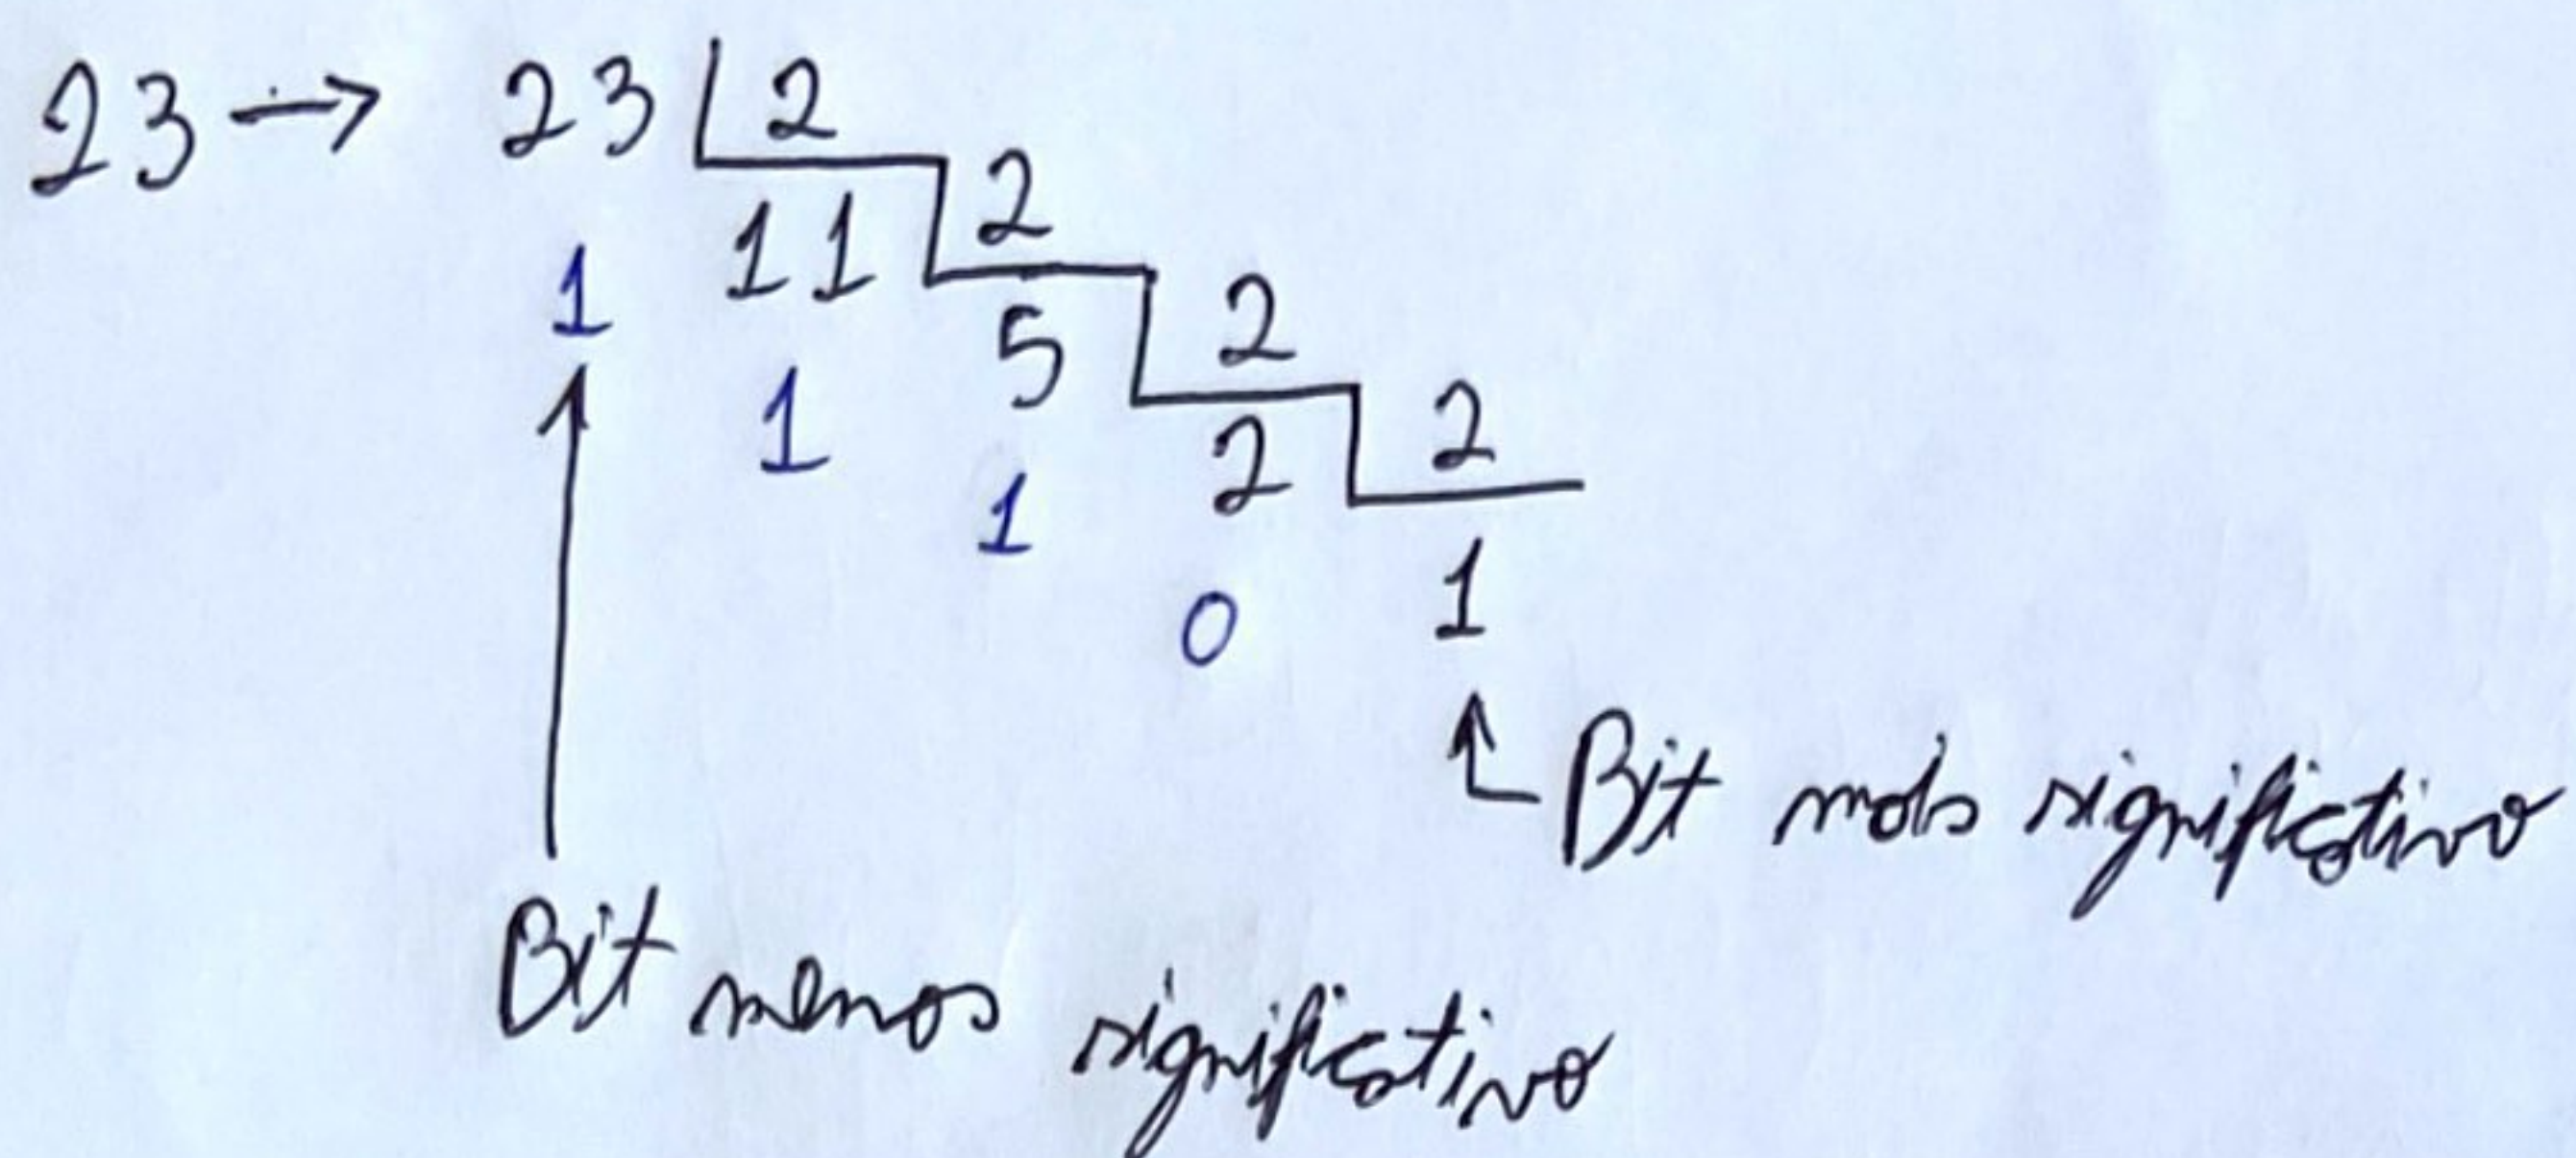 23 → 23 2
11 2
1
5 2
1
2 2
1
0 1
Bit más significativo
Bit menos significativo